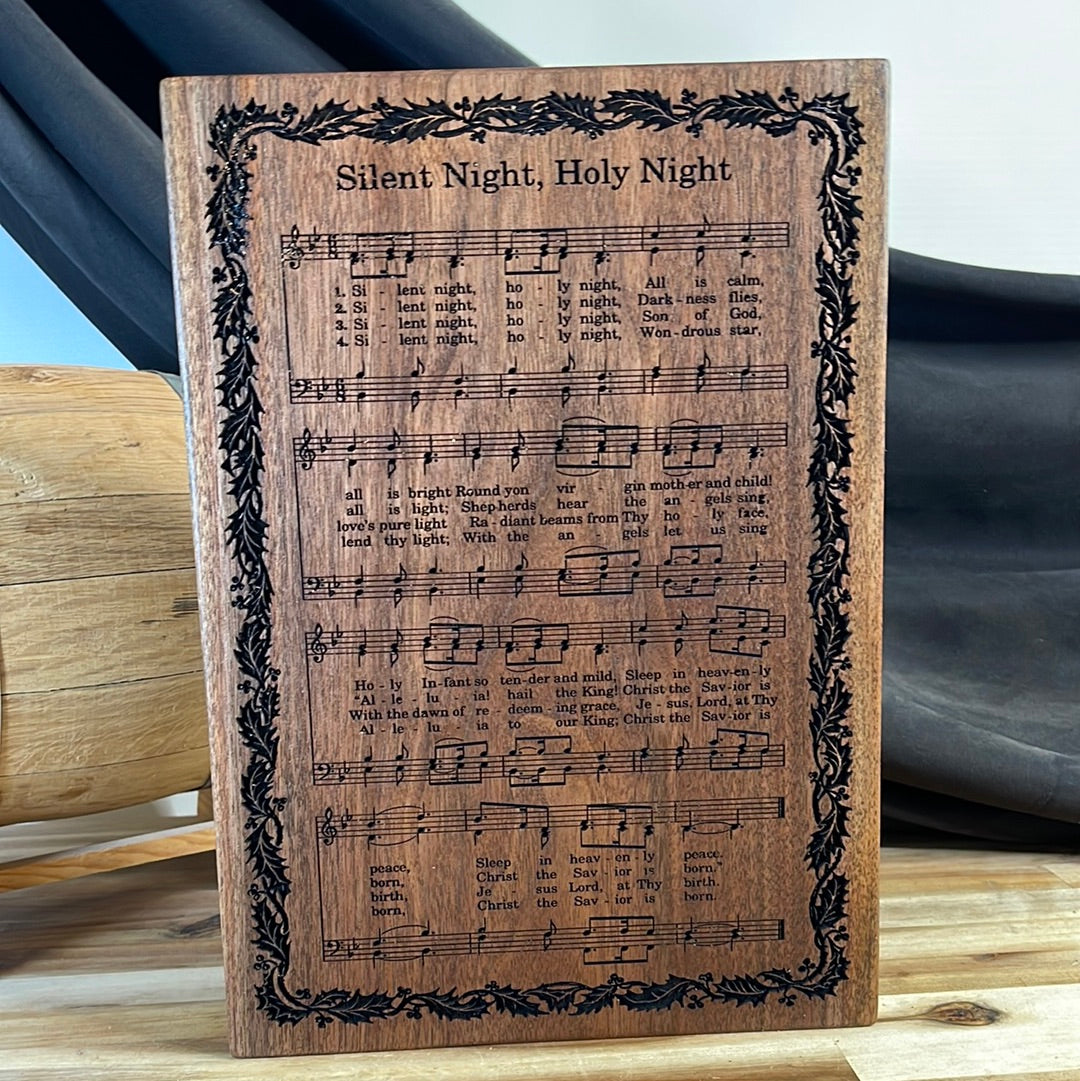 Silent Night, Holy Night
1. Si - lent night, ho - ly night, All is calm,
2. Si - lent night, ho - ly night, Dark - ness flies,
3. Si - lent night, ho - ly night, Son of God,
4. Si - lent night, ho - ly night, Won - drous star,
all is bright Round yon vir - gin moth-er and child!
all is light; Shep-herds hear the an - gels sing,
love's pure light Ra - diant beams from Thy ho - ly face,
lend thy light; With the an - gels let us sing
Ho - ly In-fant so ten-der and mild, Sleep in heav-en-ly
"Al - le - lu - ia! hail the King! Christ the Sav-ior is
With the dawn of re - deem - ing grace, Je - sus, Lord, at Thy
Al - le - lu - ia to our King; Christ the Sav-ior is
peace, Sleep in heav - en - ly peace.
born, Christ the Sav - ior is born."
birth, Je - sus Lord, at Thy birth.
born, Christ the Sav - ior is born.